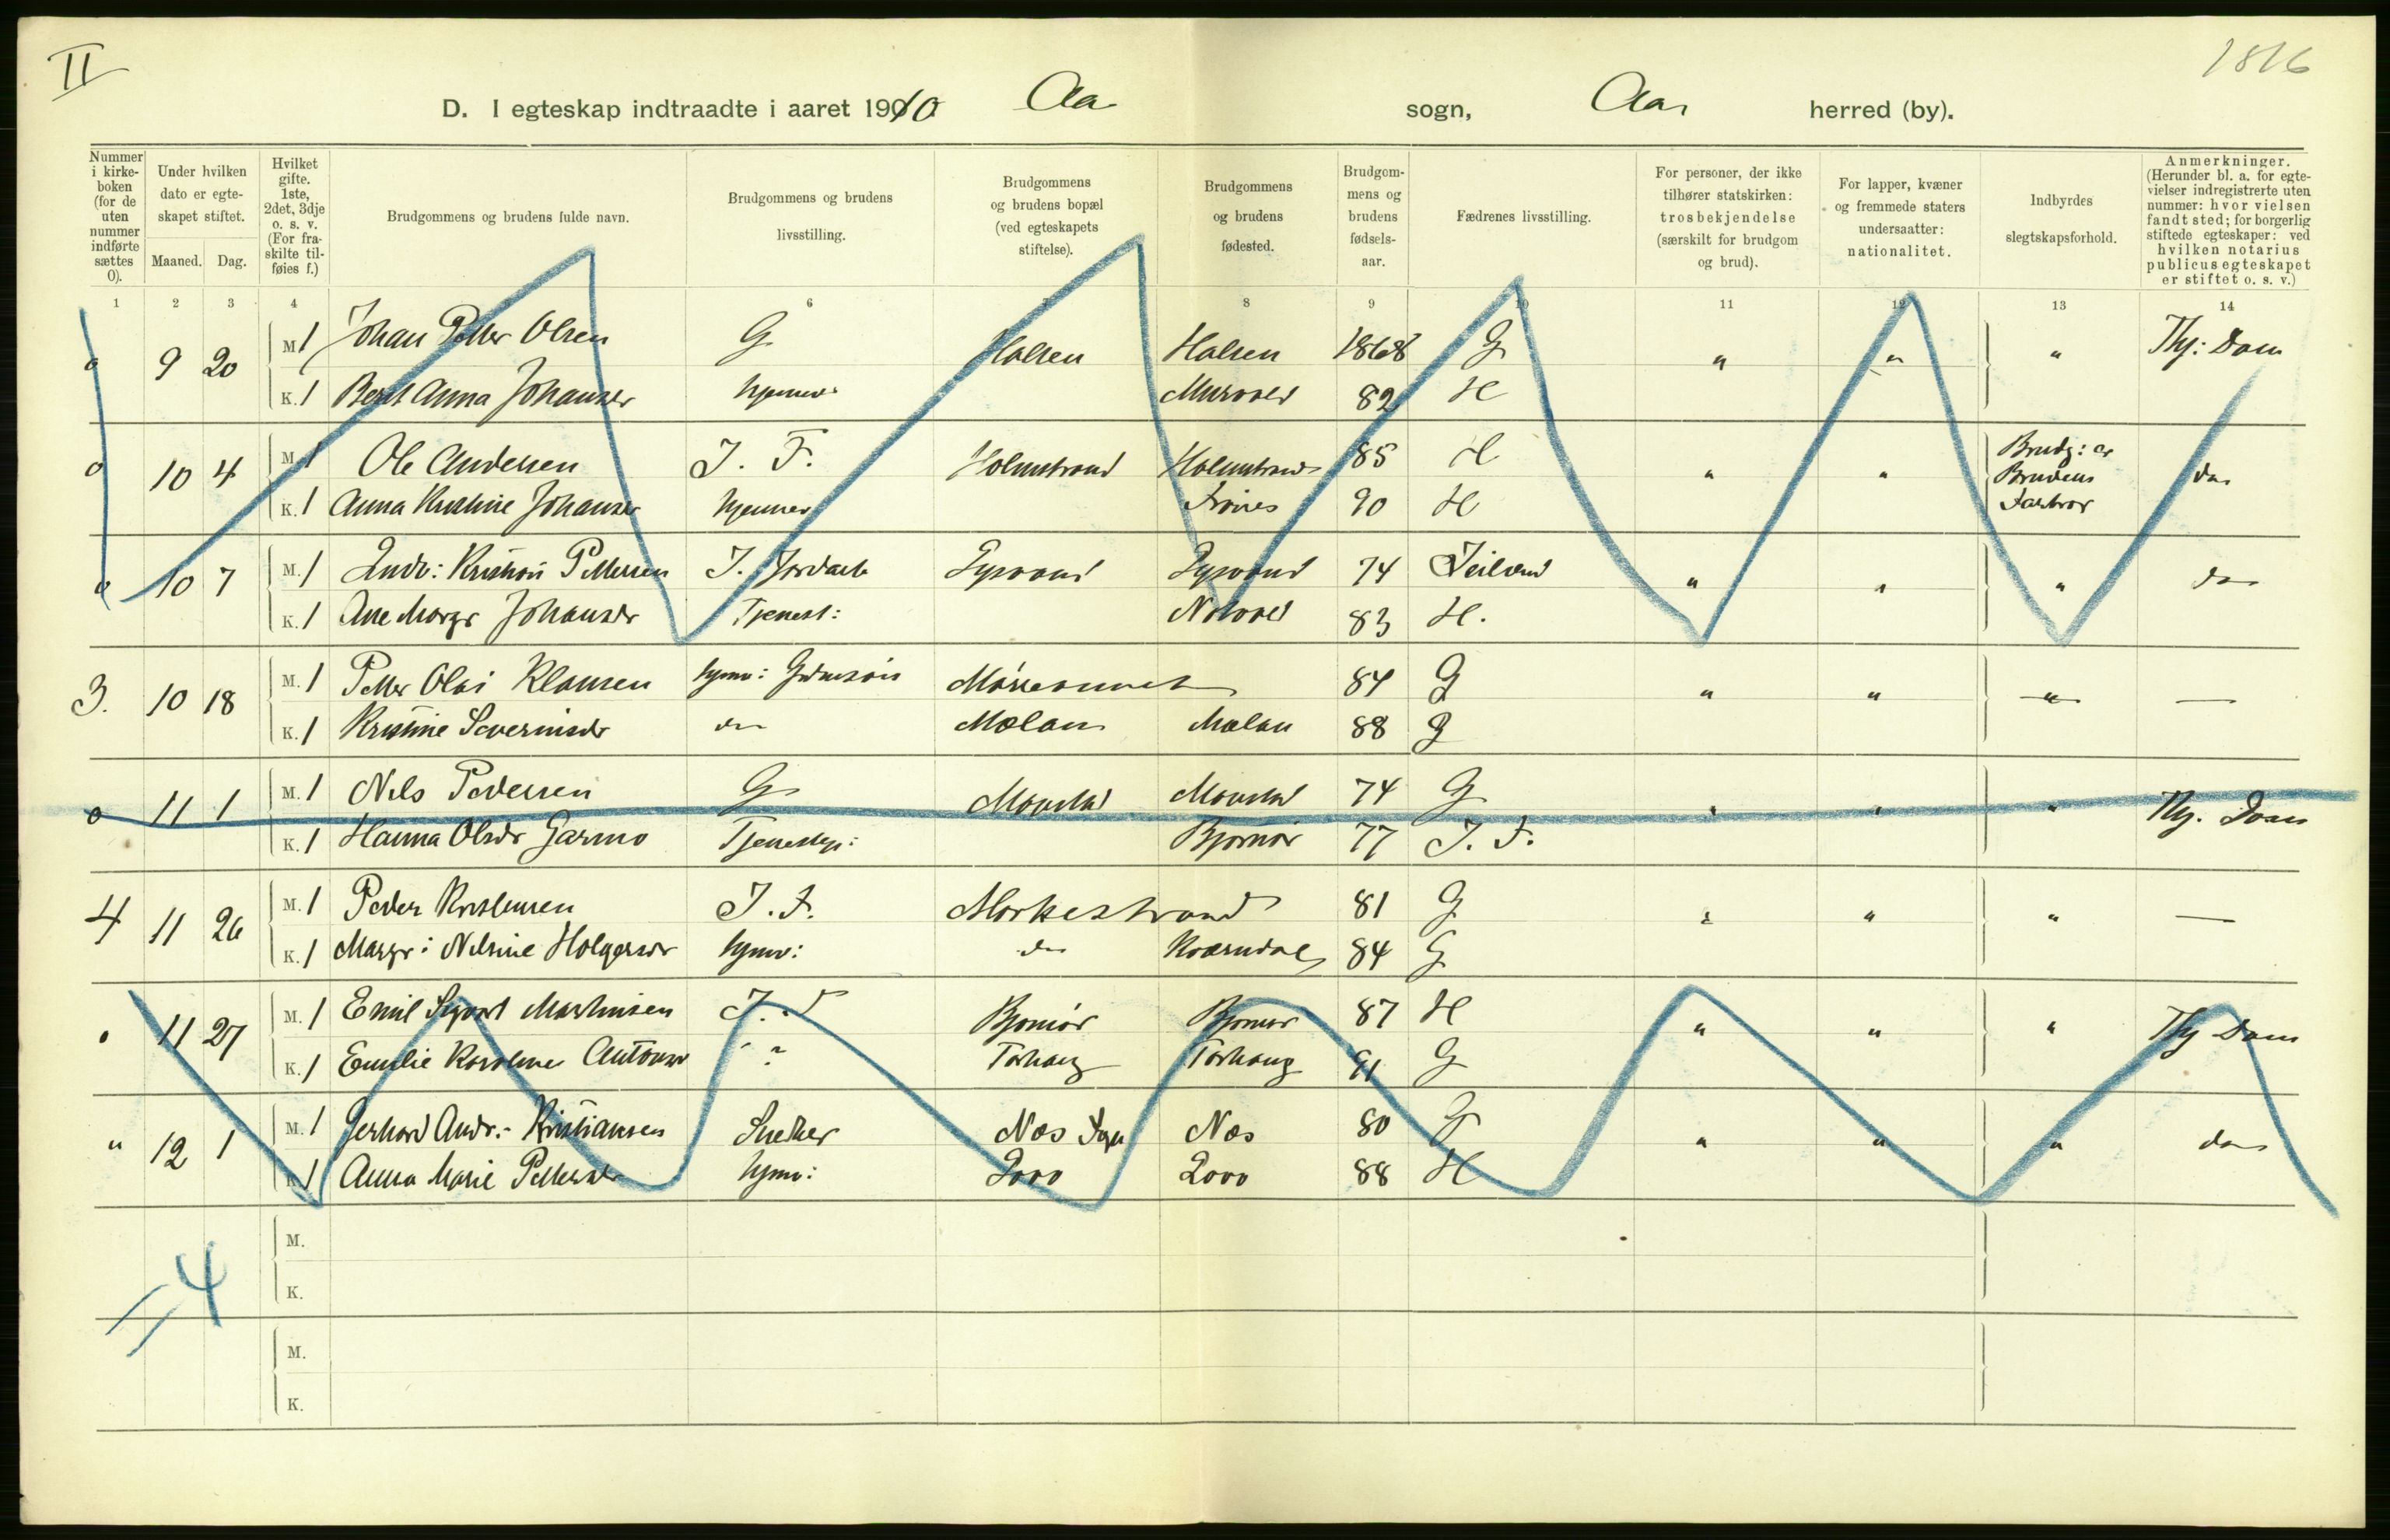 II
1816
D. I egteskap indtraadte i aaret 1910 Aa sogn, Aa, herred (by).
Nummer i kirke-boken (for de uten nummer indførte sættes 0).
Under hvilken dato er egte-skapet stiftet.
Maaned. Dag.
Hvilket gifte. 1ste, 2det, 3dje o. s. v. (For fra-skilte til-føies f.)
Brudgommens og brudens fulde navn.
Brudgommens og brudens livsstilling.
Brudgommens og brudens bopæl (ved egteskapets stiftelse).
Brudgommens og brudens fødested.
Brudgom-mens og brudens fødsels-aar.
Fædrenes livsstilling.
For personer, der ikke tilhører statskirken: trosbekjendelse (særskilt for brudgom og brud).
For lapper, kvæner og fremmede staters undersaatter: nationalitet.
Indbyrdes slegtskapsforhold.
Anmerkninger. (Herunder bl. a. for egte-vielser indregistrerte uten nummer: hvor vielsen fandt sted; for borgerlig stiftede egteskaper: ved hvilken notarius publicus egteskapet er stiftet o. s. v.)
1 2 3 4 5 6 7 8 9 10 11 12 13 14
0 9 20 M 1 Johan Petter Olsen G Halsen Halsen 1868 G " " " Thj: Dom
K. 1 Berit Anna Johansdr hjemmev 82 H
0 10 4 M. 1 Ole Andersen I. F. Holmstrand Holmstrand 85 H " " Brudg: er Brudens Farbror do
K. 1 Anna Kristine Johansdr hjemmev 90 H
0 10 7 M. 1 Ludv: Kristian Pettersen I. Jordarb Lysvand Lysvand 74 " " " do
K. 1 Ane Margr Johansdr Tjenest: 83 H.
3. 10 18 M. 1 Petter Olai Klausen 84 G " " " —
K. 1 Kristine Severinsdr do Mælan Mælan 88 G
0 11 1 M. 1 Nils Pedersen G Monstad Monstad 74 G " " " Thj. Dom
K. 1 Hanna Olsdr Garmo Tjenestepi: Bjørnør 77 I. F.
4 11 26 M. 1 Peder Kristensen I. F. Morkestrand 81 G " " " —
K. 1 Margr: Nilsine Holgersdr hjmv: do Kværndal 84 G
0 11 27 M. 1 Emil Sigvart Martinsen I. F Bjørnør Bjørnør 87 H " " " Thj Dom
K. 1 Emilie Karoline Antonsdr - ? Tørhaug Tørhaug 91 G
" 12 1 M. 1 Gerhard Andr:- Kristiansen Snedker Næs Sogn Næs 80 G " " " do
K 1 Anna Marie Pettersdr hjmv: 88 H
M.
K.
= 4
M.
K.